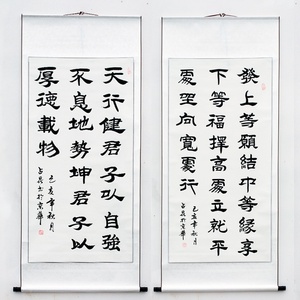 天行健君子以自強
不息地勢坤君子以
厚德載物
己亥年秋月
於京華
發上等願結中等緣享
下等福擇高處立就平
處坐向寬處行
己亥年秋月
於京華